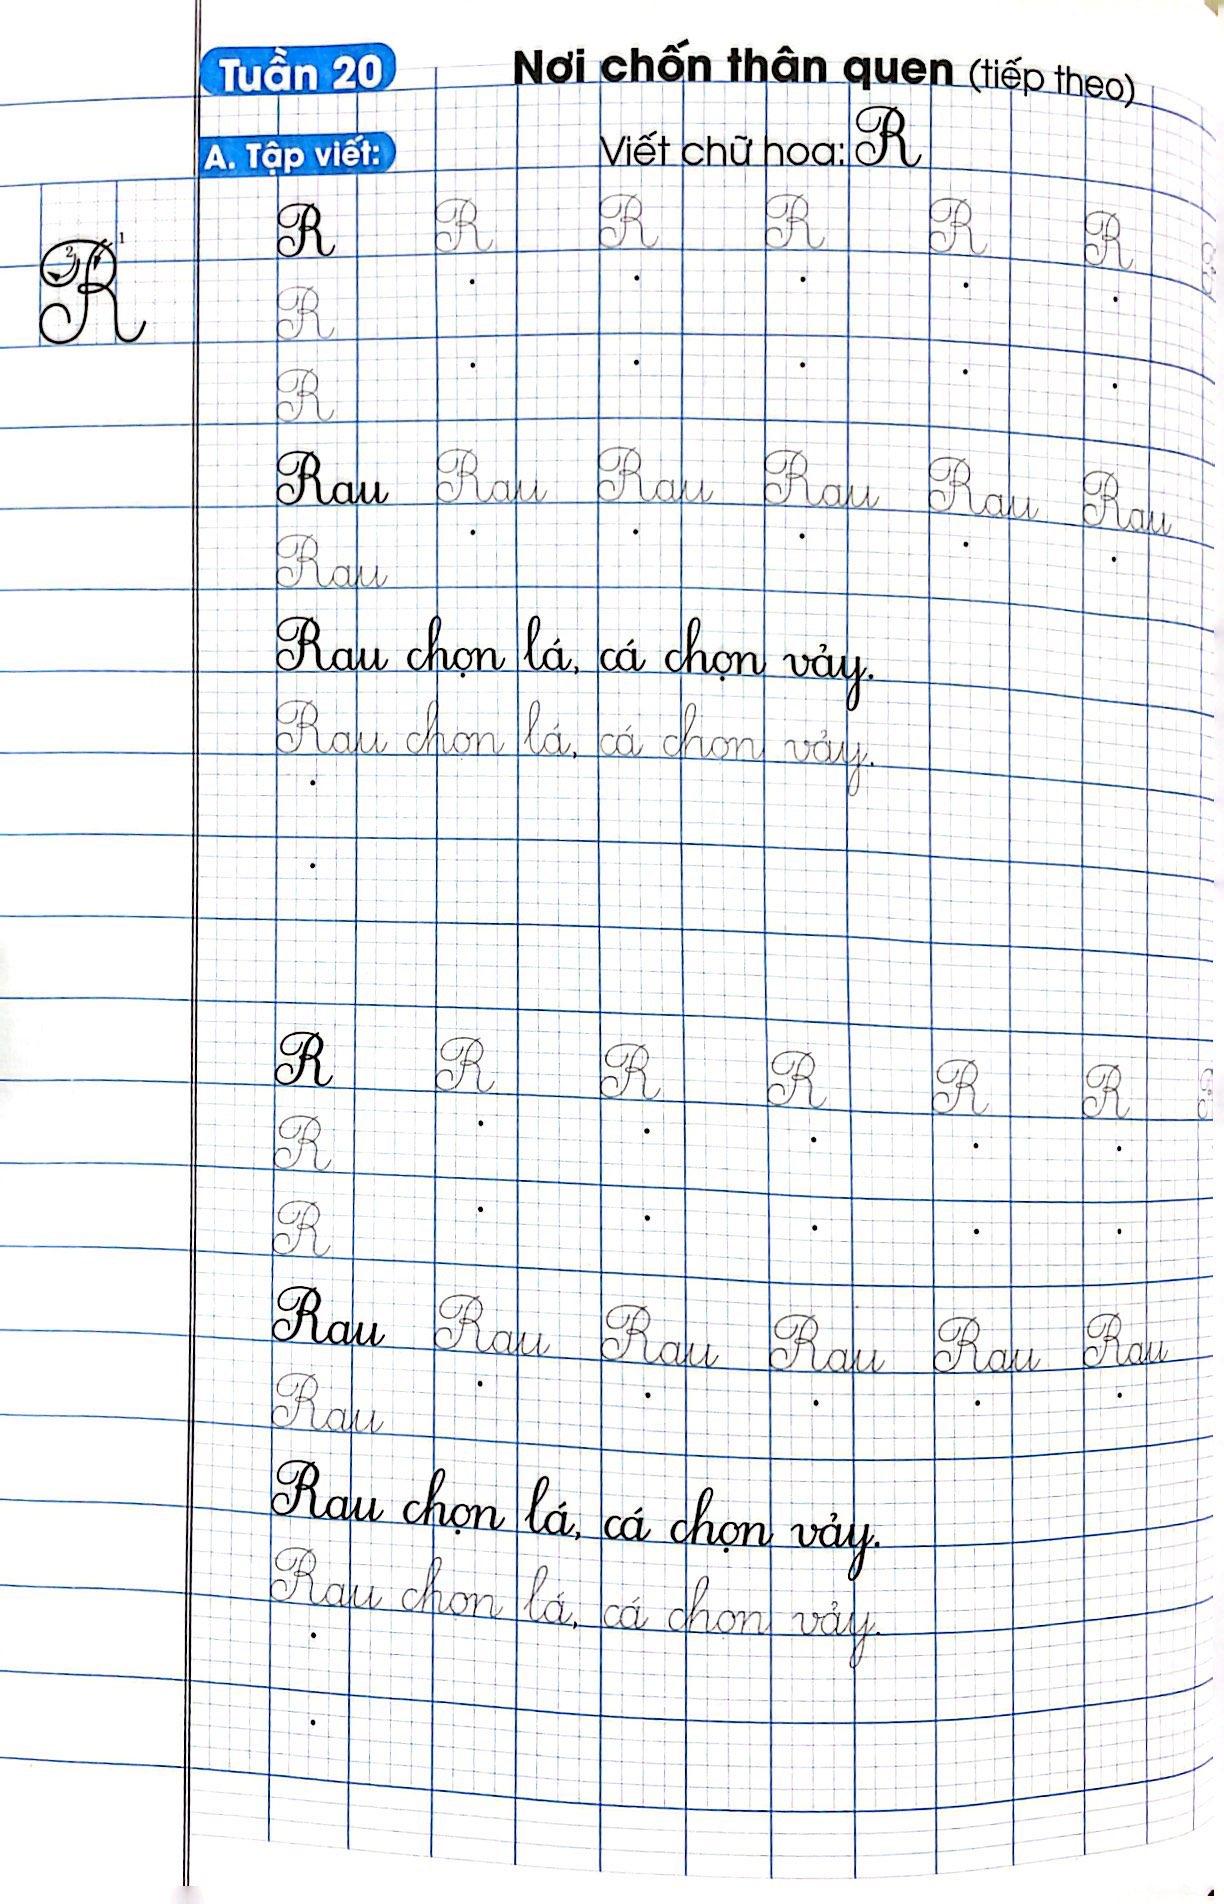 Tuần 20 Nơi chốn thân quen (tiếp theo)
A. Tập viết: Viết chữ hoa: R
R R R R R R
R 1 2
R
R
Rau Rau Rau Rau Rau Rau
Rau
Rau chọn lá, cá chọn vảy.
Rau chọn lá, cá chọn vảy.
R R R R R R
R
R
Rau Rau Rau Rau Rau Rau
Rau
Rau chọn lá, cá chọn vảy.
Rau chọn lá, cá chọn vảy.